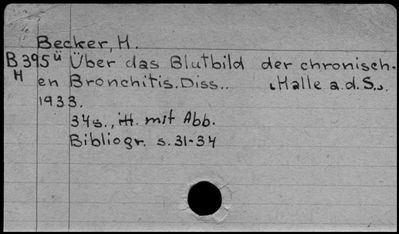 Becker, H.
B395ü Über das Blutbild der chronisch-
H en Bronchitis. Diss.. Halle a.d.S..
1933.
34s., mit Abb.
Bibliogr. s. 31-34